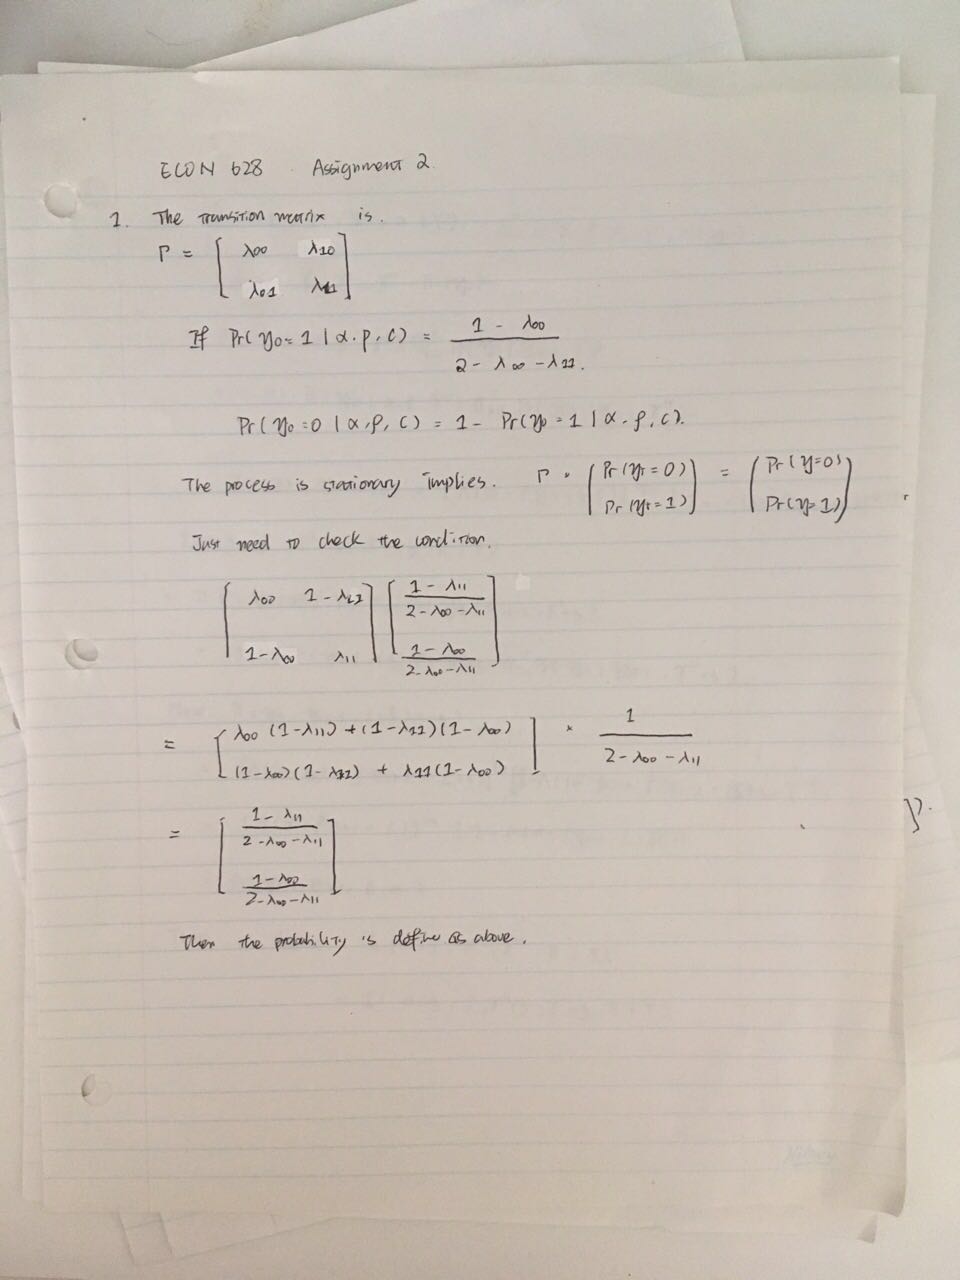 ECON 628 Assignment 2.
1. The transition matrix is.
Γ = [ λ00 λ10
λ01 λ11 ]
If Pr(y0 = 1 | α, ρ, c) = (1 - λ00) / (2 - λ00 - λ11).
Pr(y0 = 0 | α, ρ, c) = 1 - Pr(y0 = 1 | α, ρ, c).
The process is stationary implies. Γ · ( Pr(yt = 0) ) = ( Pr(y=0) )
( Pr(yt = 1) ) ( Pr(y=1) )
Just need to check the condition.
[ λ00 1 - λ11 ] [ (1 - λ11) / (2 - λ00 - λ11) ]
[ 1 - λ00 λ11 ] [ (1 - λ00) / (2 - λ00 - λ11) ]
= [ λ00 (1 - λ11) + (1 - λ11)(1 - λ00) ] × 1 / (2 - λ00 - λ11)
[ (1 - λ00)(1 - λ11) + λ11 (1 - λ00) ]
= [ (1 - λ11) / (2 - λ00 - λ11) ]
[ (1 - λ00) / (2 - λ00 - λ11) ]
Then the probability is define as above.